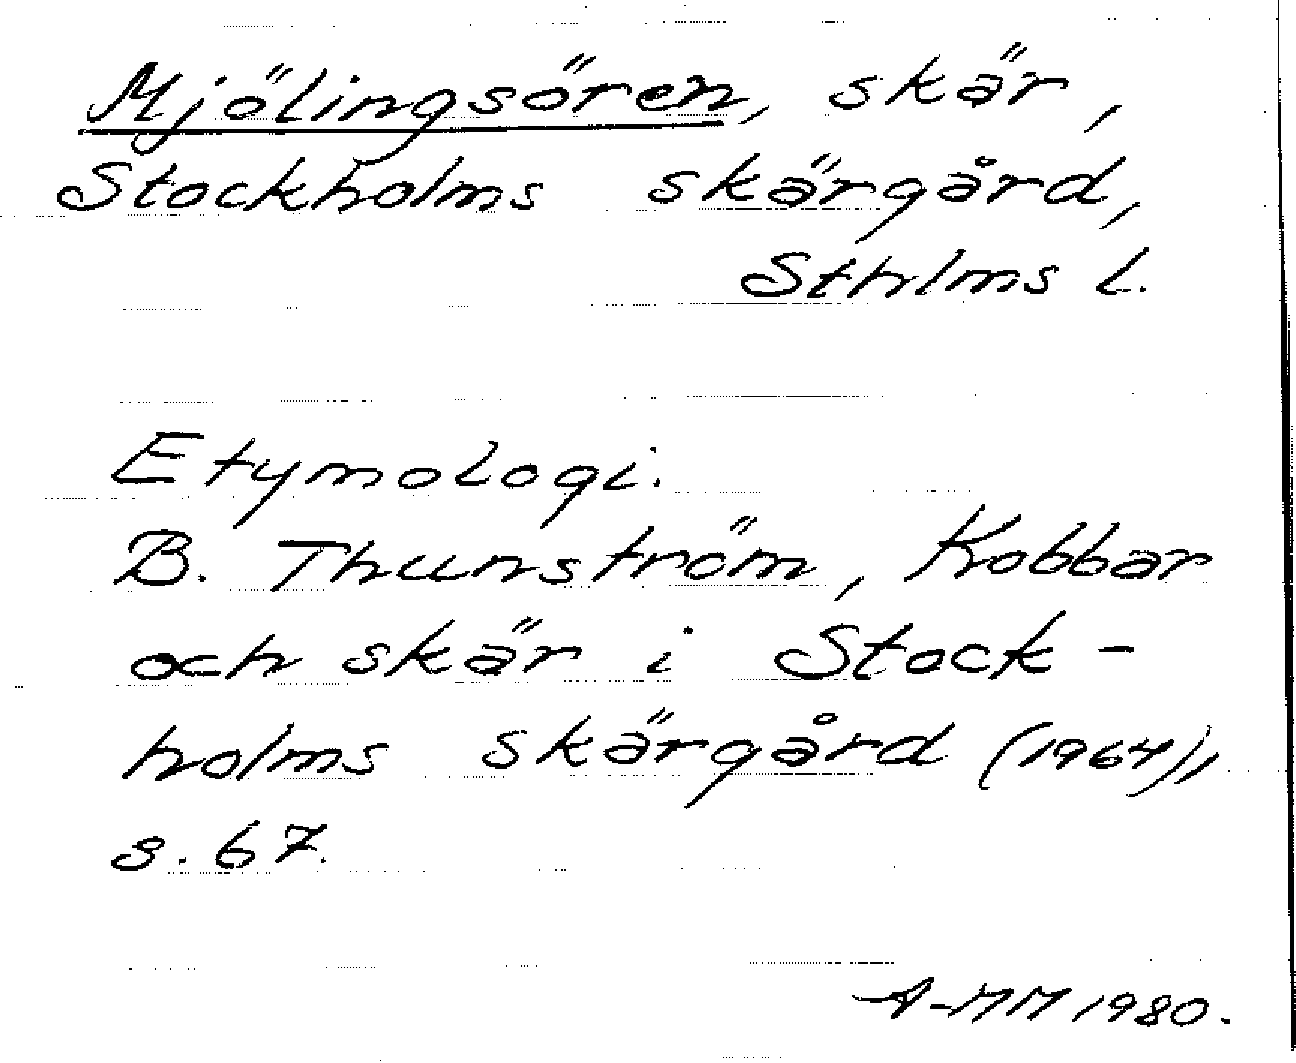 Mjölingsören, skär,
Stockholms skärgård,
Sthlms l.
Etymologi.
B. Thunström, Kobbar
och skär i Stock-
holms skärgård (1964),
s. 67.
A-MM 1980.